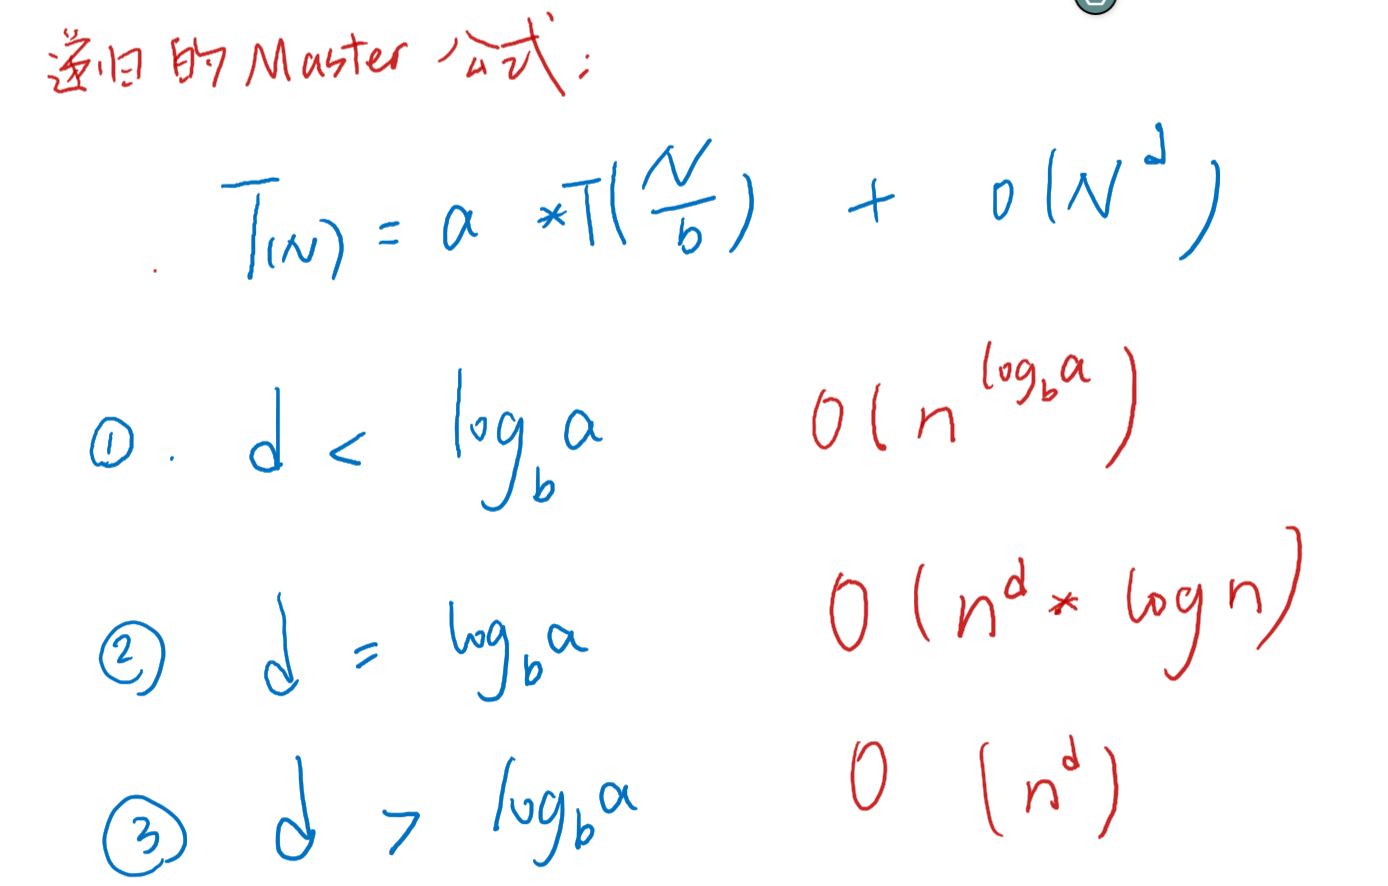 递归的Master公式:
T(N) = a *T(N/b) + O(N^d)
①. d < log_b a O(n^(log_b a))
② d = log_b a O(n^d * log n)
③ d > log_b a O (n^d)